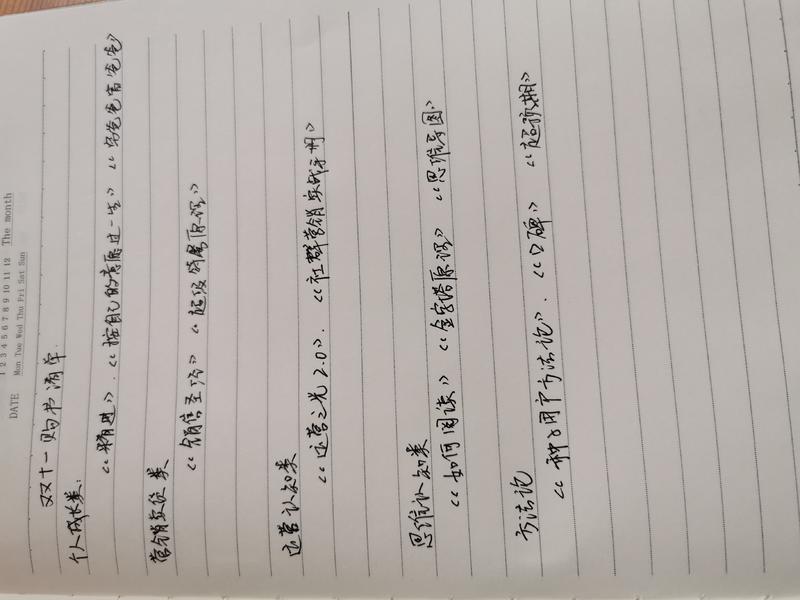 DATE
1 2 3 4 5 6 7 8 9 10 11 12 The month
Mon Tue Wed Thu Fri Sat Sun
双十一购书清单.
个人成长类:
《精进》.《按自己的意愿过一生》《穷爸爸富爸爸》
营销变现类
《销售圣经》《超级转化原理》
运营认知类
《运营之光 2.0》.《社群营销实战手册》
思维认知类
《如何阅读》《金字塔原理》《思维导图》
方法论
《种子用户方法论》.《口碑》《超预期》